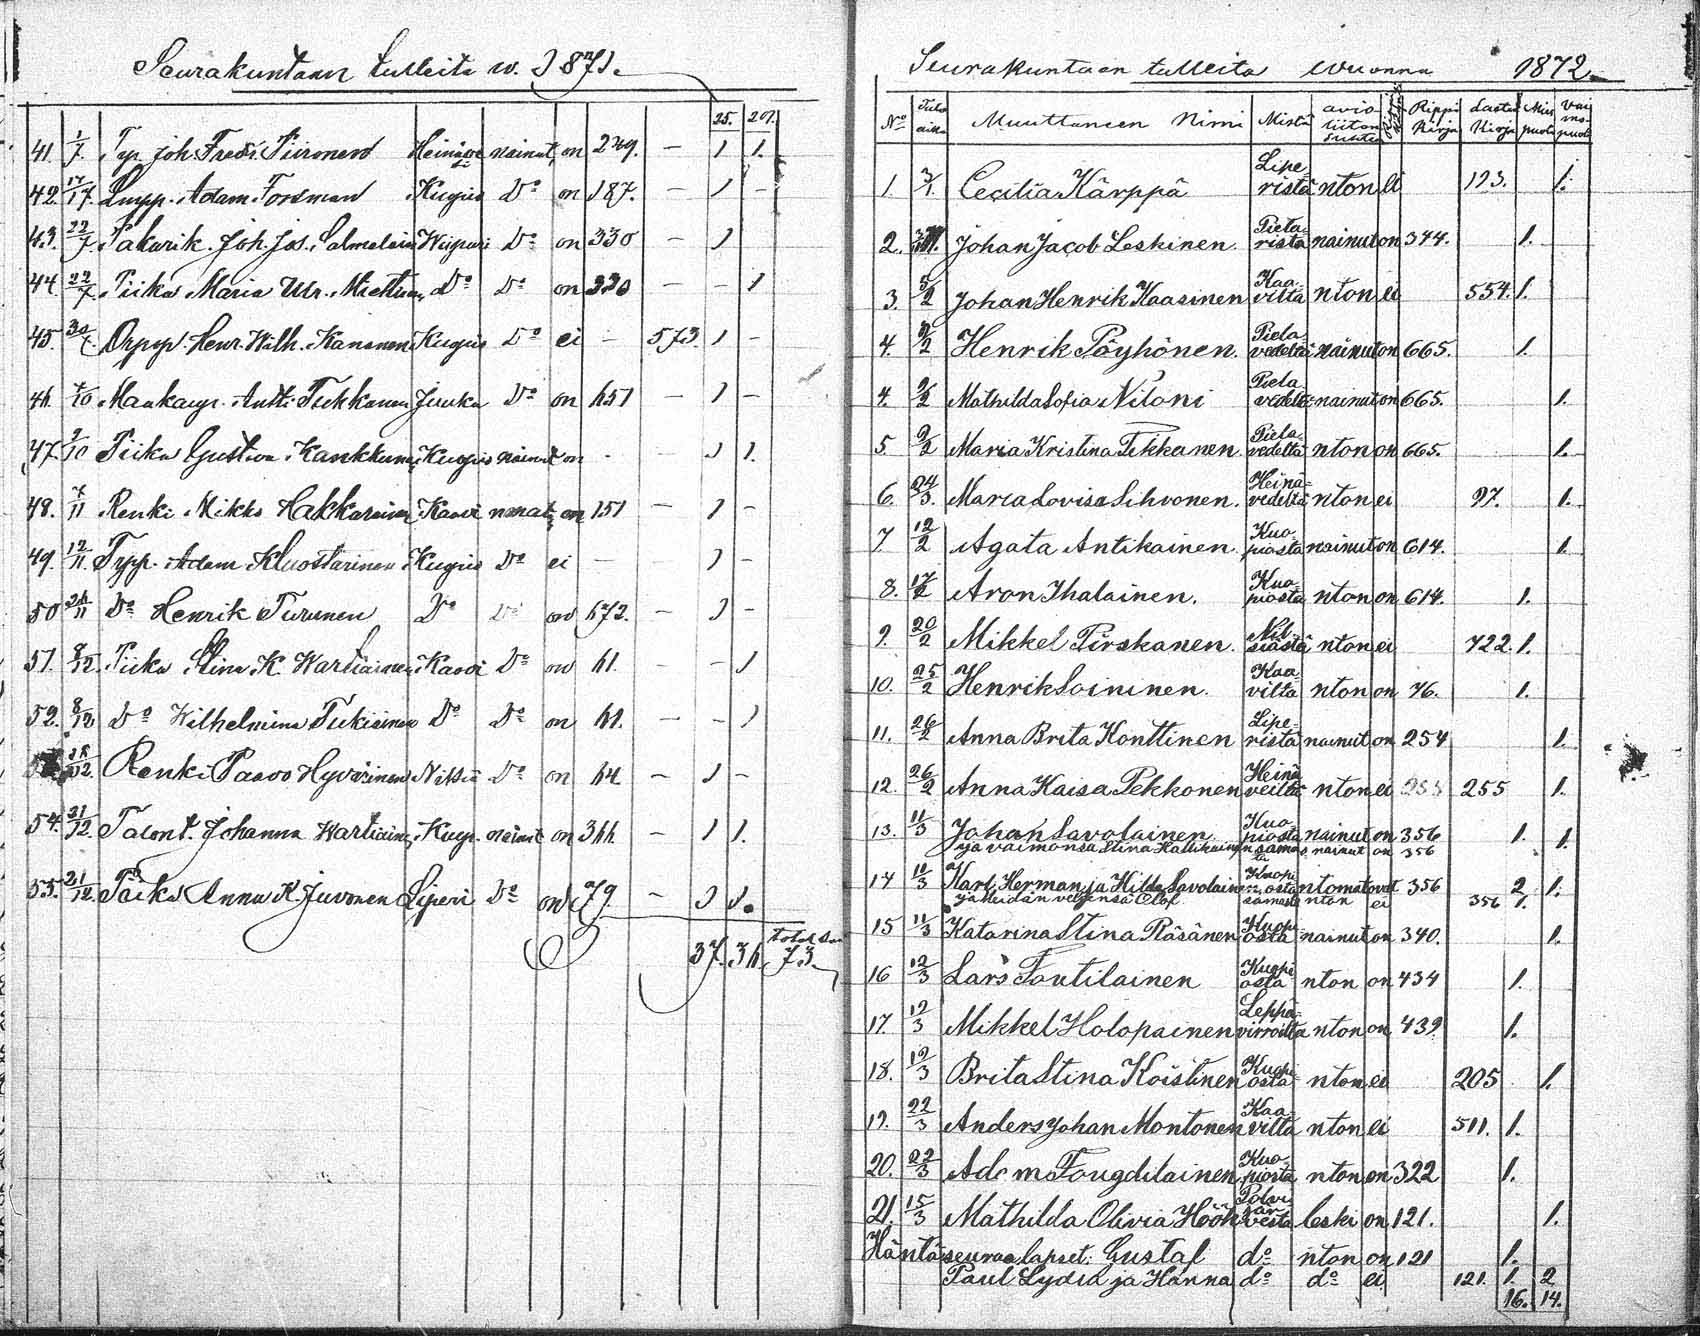 Seurakuntaan tulleita w. 1871.
25. 20.
41. 1/7. Joh. Fredr. Piironen nainut on 249. — 1 1.
42. 17/7. Lupp. Adam Forsman Kuopio Do on 187. — 1 —
43. 22/7. Joh. Jos. Salmelain Wiipuri Do on 330 — 1
44. 22/7. Piika Maria Do Do on 330 — — 1
45. 30/7. Henr. Wilh. Kananen Kuopio Do ei — 573 1 —
46. /10 Antti Tukkanen Juuka Do on 651 — 1 —
47. 9/10 Piika Gustava Kankkunen Kuopio nainut on - - 1 1.
48. 7/11 Renki Mikko Hakkarainen Kaavi on 151 — 1 —
49. 12/11. Adam Kluostarinen Kuopio Do ei — — 1 —
50 26/11 Do Henrik Turunen Do Do on 672. — 1 —
51. 8/12. Piika Stina K. Wartiainen Kaavi Do on 61. — — 1
52. 8/12. Do Wilhelmina Do Do on 61. — — 1
/12. Renki Paavo Hyvärinen Nilsiä Do on 64 — 1 —
54. 21/12. Johanna Wartiain Kuop. nainut on 366 — 1 1.
55. 21/12. Piika Anna K. Juvonen Liperi Do on 79 — 1 1.
37. 36. 73.
Seurakuntaan tulleita wuonna 1872
No Tulo aika Muuttaneen Nimi Mistä avio liiton suhde Rippi Kirja Lasten Kirja Mies puoli Vai mo puoli
1. 3/1. Cecilia Kärppä Liperistä nton ei 193. 1.
2. Johan Jacob Leskinen. Pieta-rista nainut on 344. 1.
3. 5/2 Johan Henrik Kaasinen Kaa-vilta nton ei 554. 1.
4. 9/2 Henrik Pöyhönen. Piela-vedeltä nainut on 665. 1.
4. 9/2 Mathilda Sofia Niloni Piela vedeltä nainut on 665. 1.
5 9/2 Maria Kristina Tikkanen. Piela-vedeltä nton on 665. 1.
6. 24/3. Maria Lovisa Sihvonen. Heinä-vedeltä nton ei 97. 1.
7 12/2 Agata Antikainen Kuo-piosta nainut on 614. 1.
8. 17/2 Aron Ihalainen. Kuo-piosta nton on 614. 1.
9. 20/2 Mikkel Pirskanen. Nil-siästä nton ei 722. 1.
10. 25/2 Henrik Soininen. Kaa-vilta nton on 76. 1.
11. 26/2 Anna Brita Konttinen Lipe-ristä nainut on 254 1.
12. 26/2 Anna Kaisa Pekkonen Heinä veiltä nton ei 255 255 1.
13. 11/3 Johan Savolainen Kuo-piosta nainut on 356 1. 1.
ja vaimonsa Stina Hallikainen samasta nainut on 356
14 11/3 Karl Herman ja Hilda Savolainen Kuopi-osta ntomat ovat 356 2 1.
ja heidän veljensä Olof samasta nton ei 356 1.
15 11/3 Katarina Stina Räsänen Kuopi-osta nainut on 340. 1.
16 12/3 Lars Toutilainen Kuopi-osta nton on 434 1.
17. 12/3 Mikkel Holopainen Leppä-virroilta nton on 439 1.
18. 12/3 Brita Stina Koistinen Kuopi-osta nton ei 205 1.
19. 22/3 Anders Johan Montonen Kaa-vilta nton ei 511. 1.
20. 22/3 Adam Fougdilainen Kuo-piosta nton on 322 1.
21. 15/3 Mathilda Olivia Höök Polvi-jär-vestä leski on 121. 1.
Häntä seuraa lapset: Gustaf do nton on 121 1.
Paul Lydia ja Hanna do do ei 121. 1. 2
16. 14.